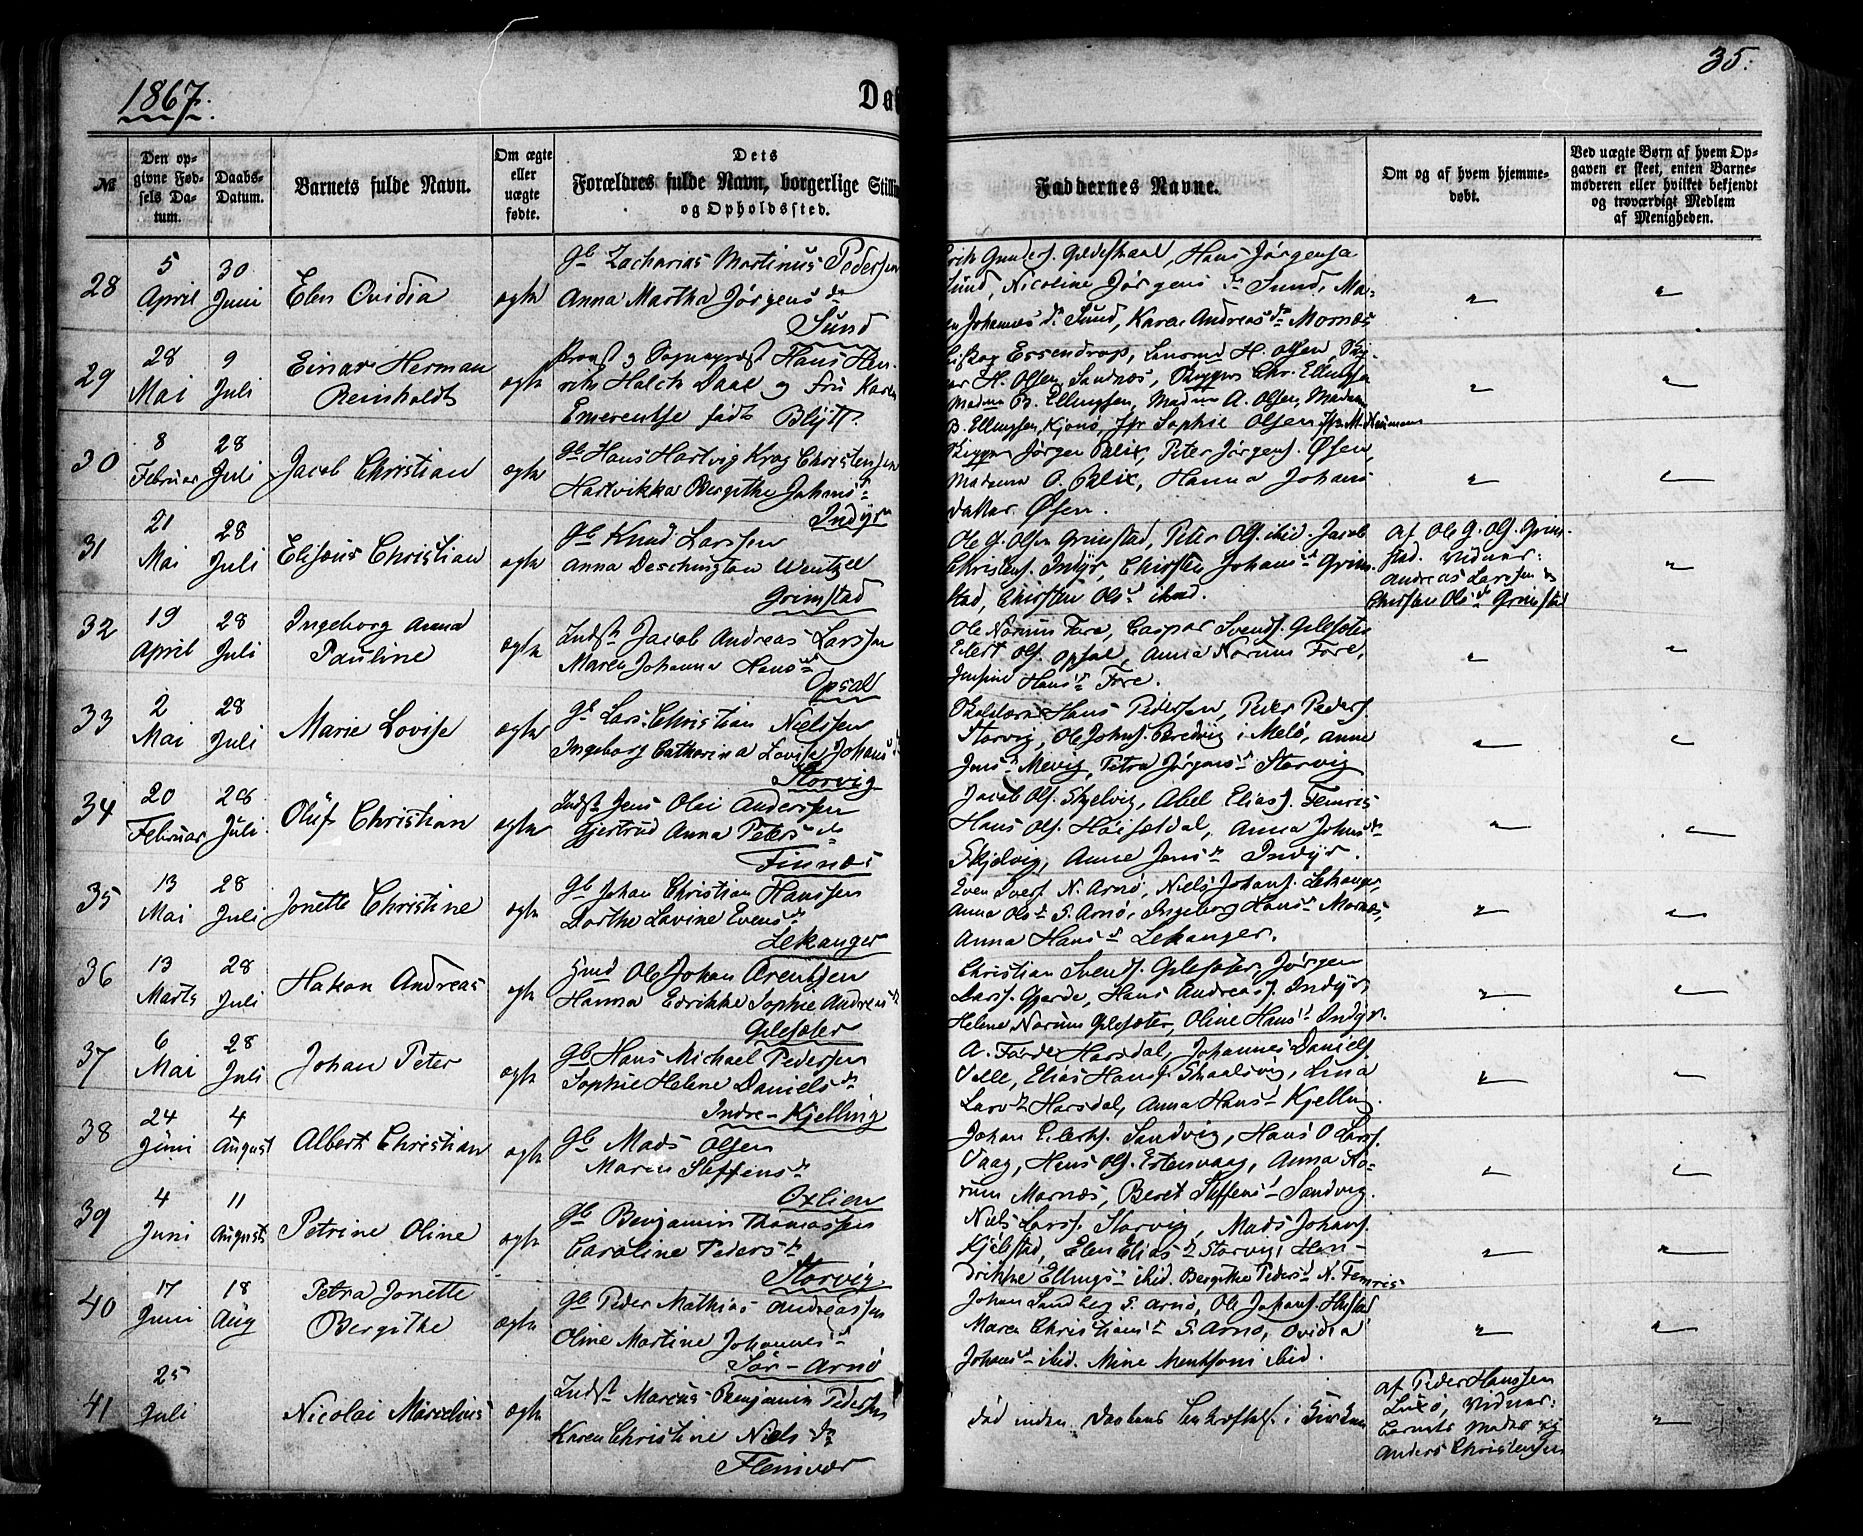 1867.
35.
№
Den op-
givne Fød-
sels Da-
tum.
Daabs-
Datum.
Barnets fulde Navn.
Om ægte
eller
uægte
fødte.
Dets
Forældres fulde Navn, borgerlige Stilli
og Opholdssted.
Faddernes Navne.
Om og af hvem hjemme-
døbt.
Ved uægte Børn af hvem Op-
gaven er skeet, enten Barne-
moderen eller hvilket bekjendt
og troværdigt Medlem
af Menigheden.
28
5 April
30 Juni
Elen Ovidia
ægte
Gb Zacharias Martinus Pedersen
Anna Martha Jørgensdr
Sund
Gunders. Gildeskaal, Hans Jørgensen
Sund, Nicoline Jørgensdr Sund, Ma-
Johannesdr Sund, Karen Andreasdr Mornæs
29
28 Mai
9 Juli
Einar Herman
Reinholdt
ægte
Provst og Sognepræst Hans Hen-
rik Halch Daae og Fru Karen
Emerentse født Blytt.
Biskop Essendrop, H. Olsen,
H. Olsen Sandnæs, Skipper Chr. Ellingsen
Madam B. Ellingsen, Madm A. Olsen, Madam
B. Ellingsen, Kjøns, Jfr Sophie Olsen, Jfr M. Neumann
30
8 Februar
28 Juli
Jacob Christian
ægte
Gb Hans Hartvig Krog Christensen
Hartvikka Bergithe Johansdr
Indyr
Skipper Jørgen Blix, Peter Jørgens. Øsen,
Madame O. Blix, Hanna Johans
datter Øsen.
31
21 Mai
28 Juli
Elisæus Christian
ægte
Gb Knud Larssen
Anna Deschington Wentzel
Grimstad
Ole G. Olsen Grimstad, Peter Ols. ibid. Jacob
Christens. Indyr, Chirsten Johansdr Grim-
stad, Chirsten Olsdr ibid.
af Ole G. Ols. Grim-
stad. Vidner:
Andreas Larssen og
Chirsten Olsdr Grimstad
32
19 April
28 Juli
Ingeborg Anna
Pauline
ægte
Indst. Jacob Andreas Larssen
Maren Johanna Hansdr
Opsal
Ole Norum Fore, Caspar Svends. Gilesæter
Elert Ols. Opsal, Anna Norum Fore,
Jensine Hansdr Fore.
33
2 Mai
28 Juli
Marie Lovise
ægte
Gb Lars Christian Nielssen
Ingeborg Catharina Lovise Johansdr
Storvig
Hans Pederssen, Peder Peders.
Storvig, Ole Johns. Bredvig i Melø, Anne
Jensdr Mevig, Petra Jørgensdr Storvig
34
20 Februar
28 Juli
Oluf Christian
ægte
Indst. Jens Olai Anderssen
Gjertrud Anna Petersdr
Finnæs
Jacob Ols. Skjelvig, Abel Elias. Femris
Hans Ols. Høiseldal, Anna Johnsdr
Skjelvig, Anne Jensdr Indyr.
35
13 Mai
28 Juli
Jonette Christine
ægte
Gb Johan Christian Hanssen
Dorthe Lavine Evensdr
Lekanger
Even Ivers. N. Arnø, Niels Johans. Lekanger,
Anna Olsdr S. Arnø, Ingeborg Hansdr Mornæs,
Anna Hansdr Lekanger.
36
13 Marts
28 Juli
Hakon Andreas
ægte
Gmd Ole Johan Arentsen
Hanna Edrikke Sophie Andreasdr
Gilesæter
Christian Svends. Gilesæter, Jørgen
Larss. Gjærde, Hans Andreas. Indyr,
Helene Norum Gilesæter, Oline Hansdr Indyr.
37
6 Mai
28 Juli
Johan Peter
ægte
Gb Hans Michael Pedersen
Sophie Helene Danielsdr
Indre-Kjelling
A. Forde Horsdal, Johannes Daniels
Velle, Elias Hans. Skaalsvig, Lina
Larsdr Horsdal, Anna Hansdr Kjelling.
38
24 Juni
4 August
Albert Christian
ægte
Gb Mads Olsen
Maren Steffensdr
Oxlien
Johan Eilerts. Sandvig, Hans O. Larss.
Vaag, Hans Ols. Estensvaag, Anna No-
rum Mornæs, Beret Steffensdr Sandvig.
39
4 Juni
11 August
Petrine Oline
ægte
Gb Benjamin Thomassen
Caroline Pedersdr
Storvig
Niels Larss. Storvig, Mads Johans.
Kjelstad, Elen Eliasdr Storvig, Hen-
drikke Ellingsdr ibid. Bergithe Pedersdr N. Femris
40
17 Juni
18 Aug
Petra Jonette
Bergithe
ægte
Gb Peder Mathias Andreassen
Oline Martine Johannesdr
Sør-Arnø
Johan Lundberg S. Arnø, Ole Johans. Hustad
Maren Christiansdr S. Arnø, Ovidia
Johansdr ibid. Mine Mentsoni ibid.
41
25 Juli
Nicolai Marselius
ægte
Indst. Marcus Benjamin Pedersen
Karen Christine Nielsdr
Flemvær
død inden Daabens Bekræftelse i Kirken
af Peder Hanssen
Luxø, Vidner:
og
Anders Christensen